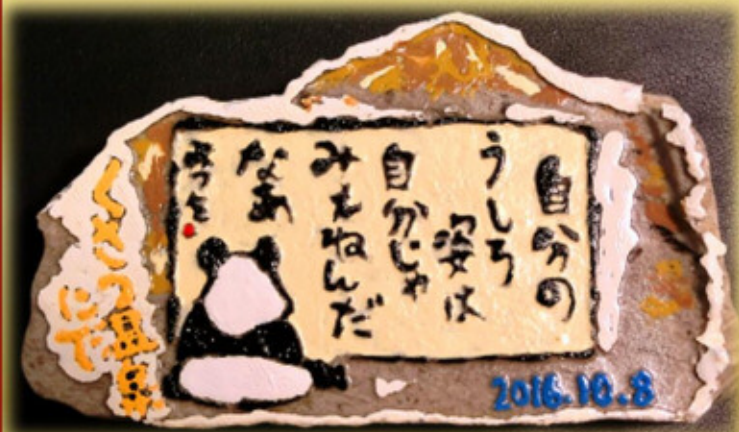 自分の
うしろ
姿は
自分じゃ
みえねんだ
なあ
みつを
くさつ温泉
にて
2016.10.8